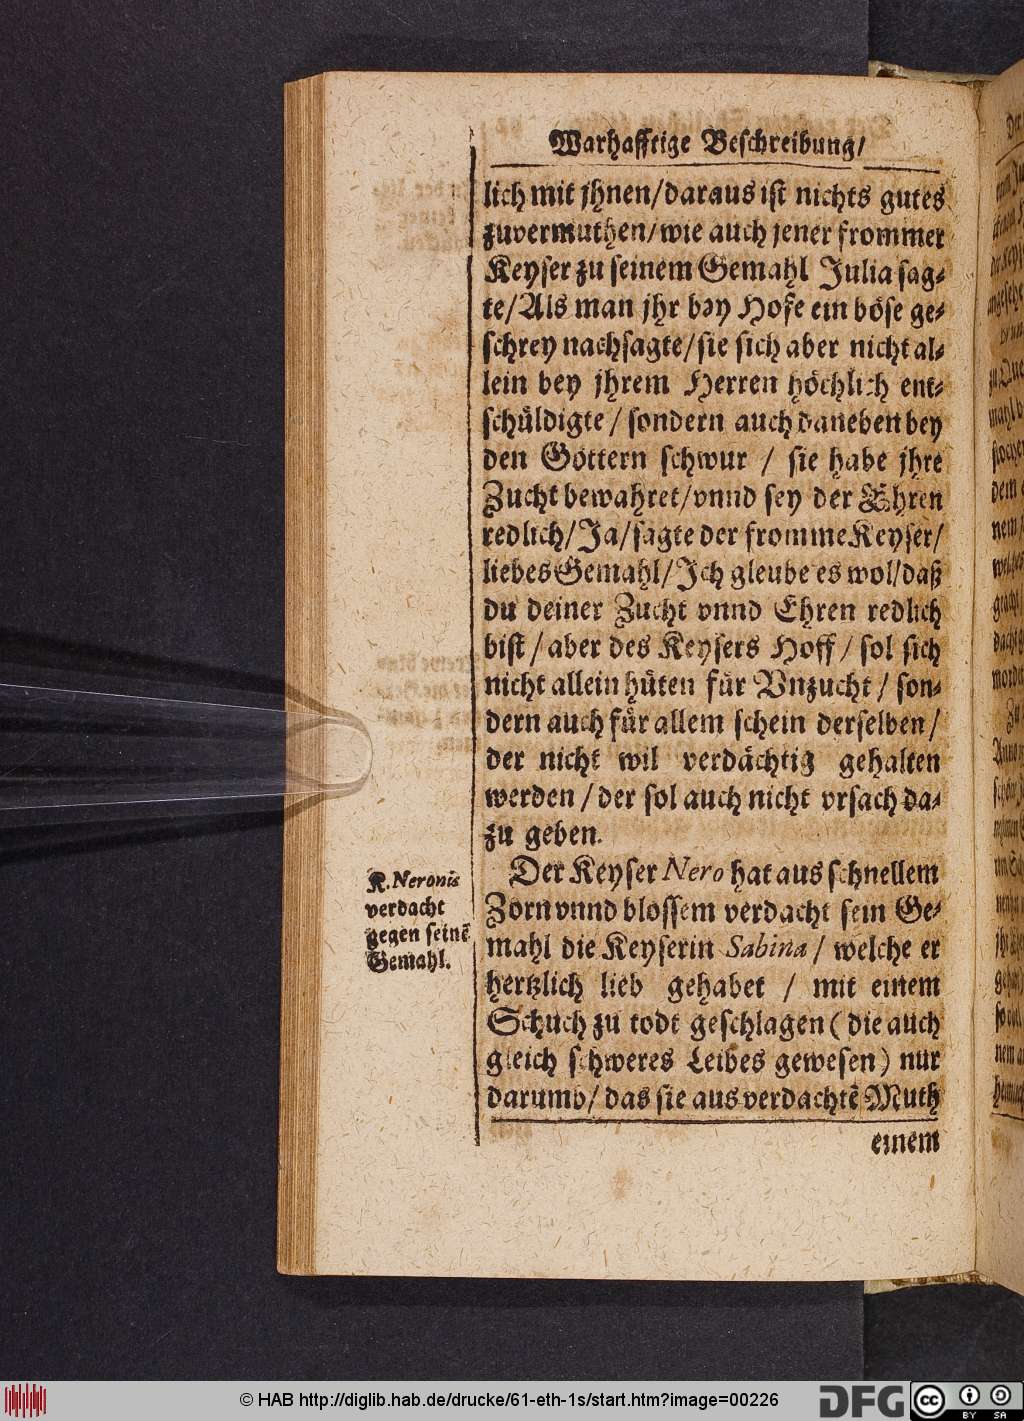 Warhafftige Beschreibung/
lich mit jhnen/daraus ist nichts gutes
zuvermuthen/wie auch jener frommer
Keyser zu seinem Gemahl Julia sag-
te/Als man jhr bey Hofe ein böse ge-
schrey nachsagte/sie sich aber nicht al-
lein bey jhrem Herren höchlich ent-
schüldigte/sondern auch daneben bey
den Göttern schwur / sie habe jhre
Zucht bewahret/vnnd sey der Ehren
redlich/Ja/sagte der fromme Keyser/
liebes Gemahl/Ich gleube es wol/daß
du deiner Zucht vnnd Ehren redlich
bist/aber des Keysers Hoff/sol sich
nicht allein hüten für Vnzucht/son-
dern auch für allem schein derselben/
der nicht wil verdächtig gehalten
werden/der sol auch nicht vrsach da-
zu geben.
K. Neronis
verdacht
gegen seinē
Gemahl.
Der Keyser Nero hat aus schnellem
Zorn vnnd blossem verdacht sein Ge-
mahl die Keyserin Sabina/welche er
hertzlich lieb gehabet / mit einem
Schuch zu todt geschlagen (die auch
gleich schweres Leibes gewesen) nur
darumb/das sie aus verdachtē Muth
einem
© HAB http://diglib.hab.de/drucke/61-eth-1s/start.htm?image=00226
DFG
cc
BY SA